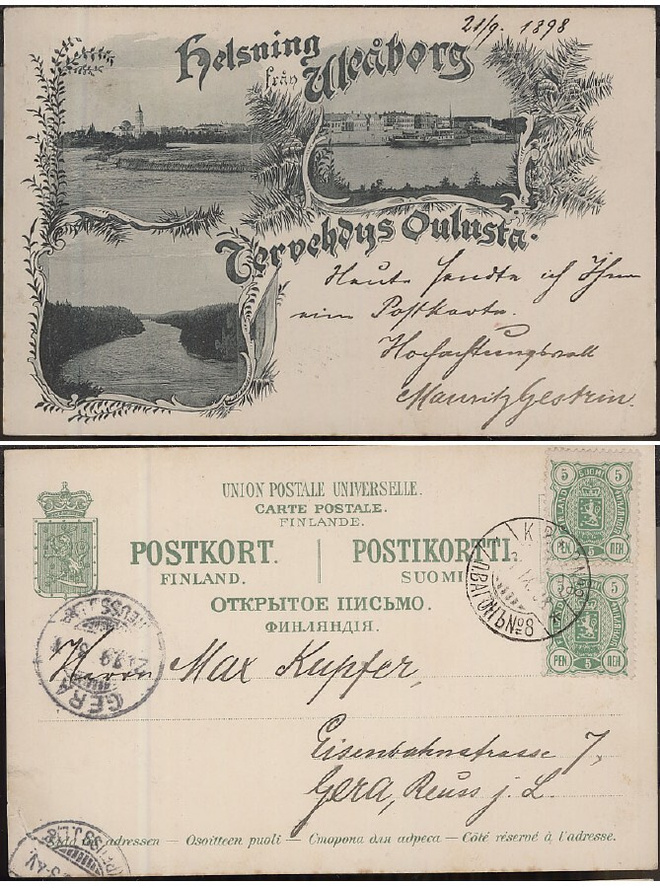 21/9. 1898
Helsning
från Uleåborg
Tervehdys Oulusta.
Heute sandte ich Ihnen
eine Postkarte.
Hochachtungsvoll
Mauritz Gestrin.
UNION POSTALE UNIVERSELLE.
CARTE POSTALE.
FINLANDE.
POSTKORT. | POSTIKORTTI.
FINLAND. SUOMI
ОТКРЫТОЕ ПИСЬМО.
ФИНЛЯНДІЯ.
5 SUOMI 5
PEN 5 ПЕН
5 5
PEN 5 ПЕН
№8
REUSS J.L.
GERA
Herrn Max Kupfer,
Eisenbahnstrasse 7,
Gera, Reuss j. L.
adressen — Osoitteen puoli — Сторона для адреса — Côté réservé à l'adresse.